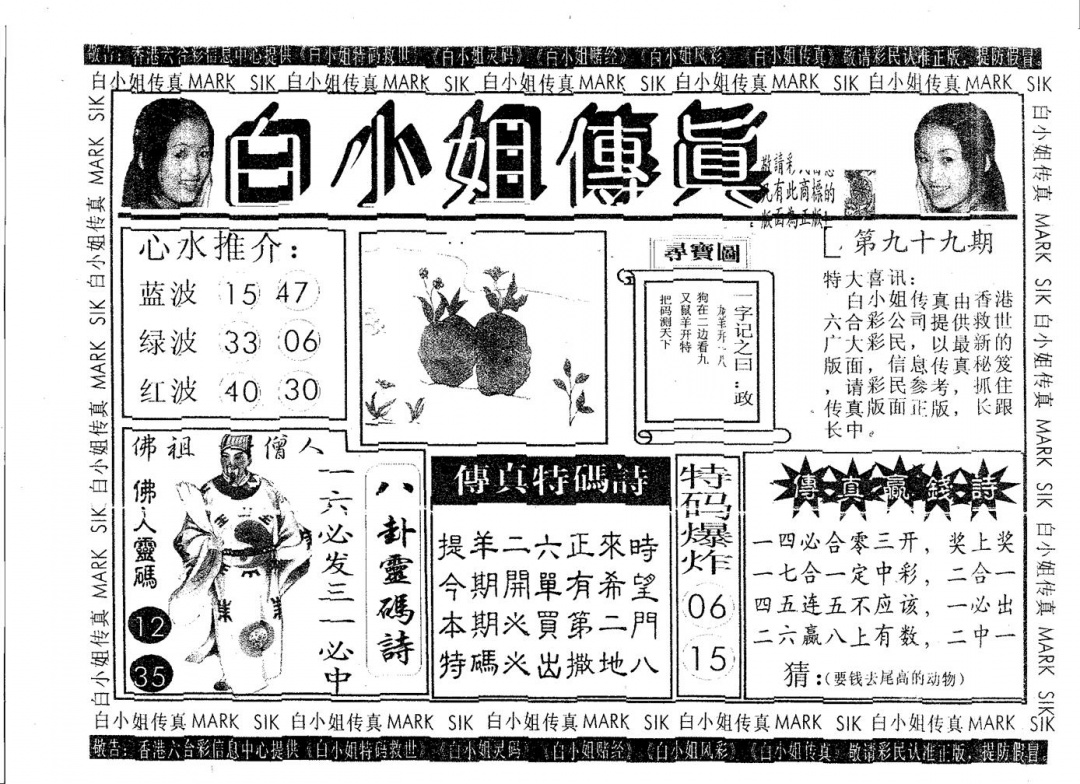 敬告：香港六合彩信息中心提供《白小姐特码救世》《白小姐灵码》《白小姐赌经》《白小姐风彩》《白小姐传真》敬请彩民认准正版，提防假冒
白小姐传真 MARK SIK 白小姐传真 MARK SIK 白小姐传真 MARK SIK 白小姐传真 MARK SIK 白小姐传真 MARK SIK
白小姐傳真
敬請彩
凡有此商標的
版面為正版
心水推介：
蓝波 15 47
绿波 33 06
红波 40 30
尋寶圖
一字记之曰：政
龙羊开一八
狗在二边看九
又鼠羊开特
把码测天下
第九十九期
特大喜讯：
白小姐传真由香港
六合彩公司提供救世
广大彩民，以最新的
版面，信息传真秘笈
，请彩民参考，抓住
传真版面正版，长跟
长中。
佛祖僧人
佛人靈碼
12
35
一六必发三一必中
八卦靈碼詩
傳真特碼詩
提羊二六正來時
今期開單有希望
本期火買第二門
特碼火出撒地八
特码爆炸
06
15
傳真贏錢詩
一四必合零三开，奖上奖
一七合一定中彩，二合一
四五连五不应该，一必出
二六赢八上有数，二中一
猜：(要钱去尾高的动物)
白小姐传真 MARK SIK 白小姐传真 MARK SIK 白小姐传真 MARK SIK
白小姐传真 MARK SIK 白小姐传真 MARK SIK 白小姐传真 MARK SIK
白小姐传真 MARK SIK 白小姐传真 MARK SIK 白小姐传真 MARK SIK 白小姐传真 MARK SIK 白小姐传真 MARK SIK
敬告：香港六合彩信息中心提供《白小姐特码救世》《白小姐灵码》《白小姐赌经》《白小姐风彩》《白小姐传真》敬请彩民认准正版，提防假冒